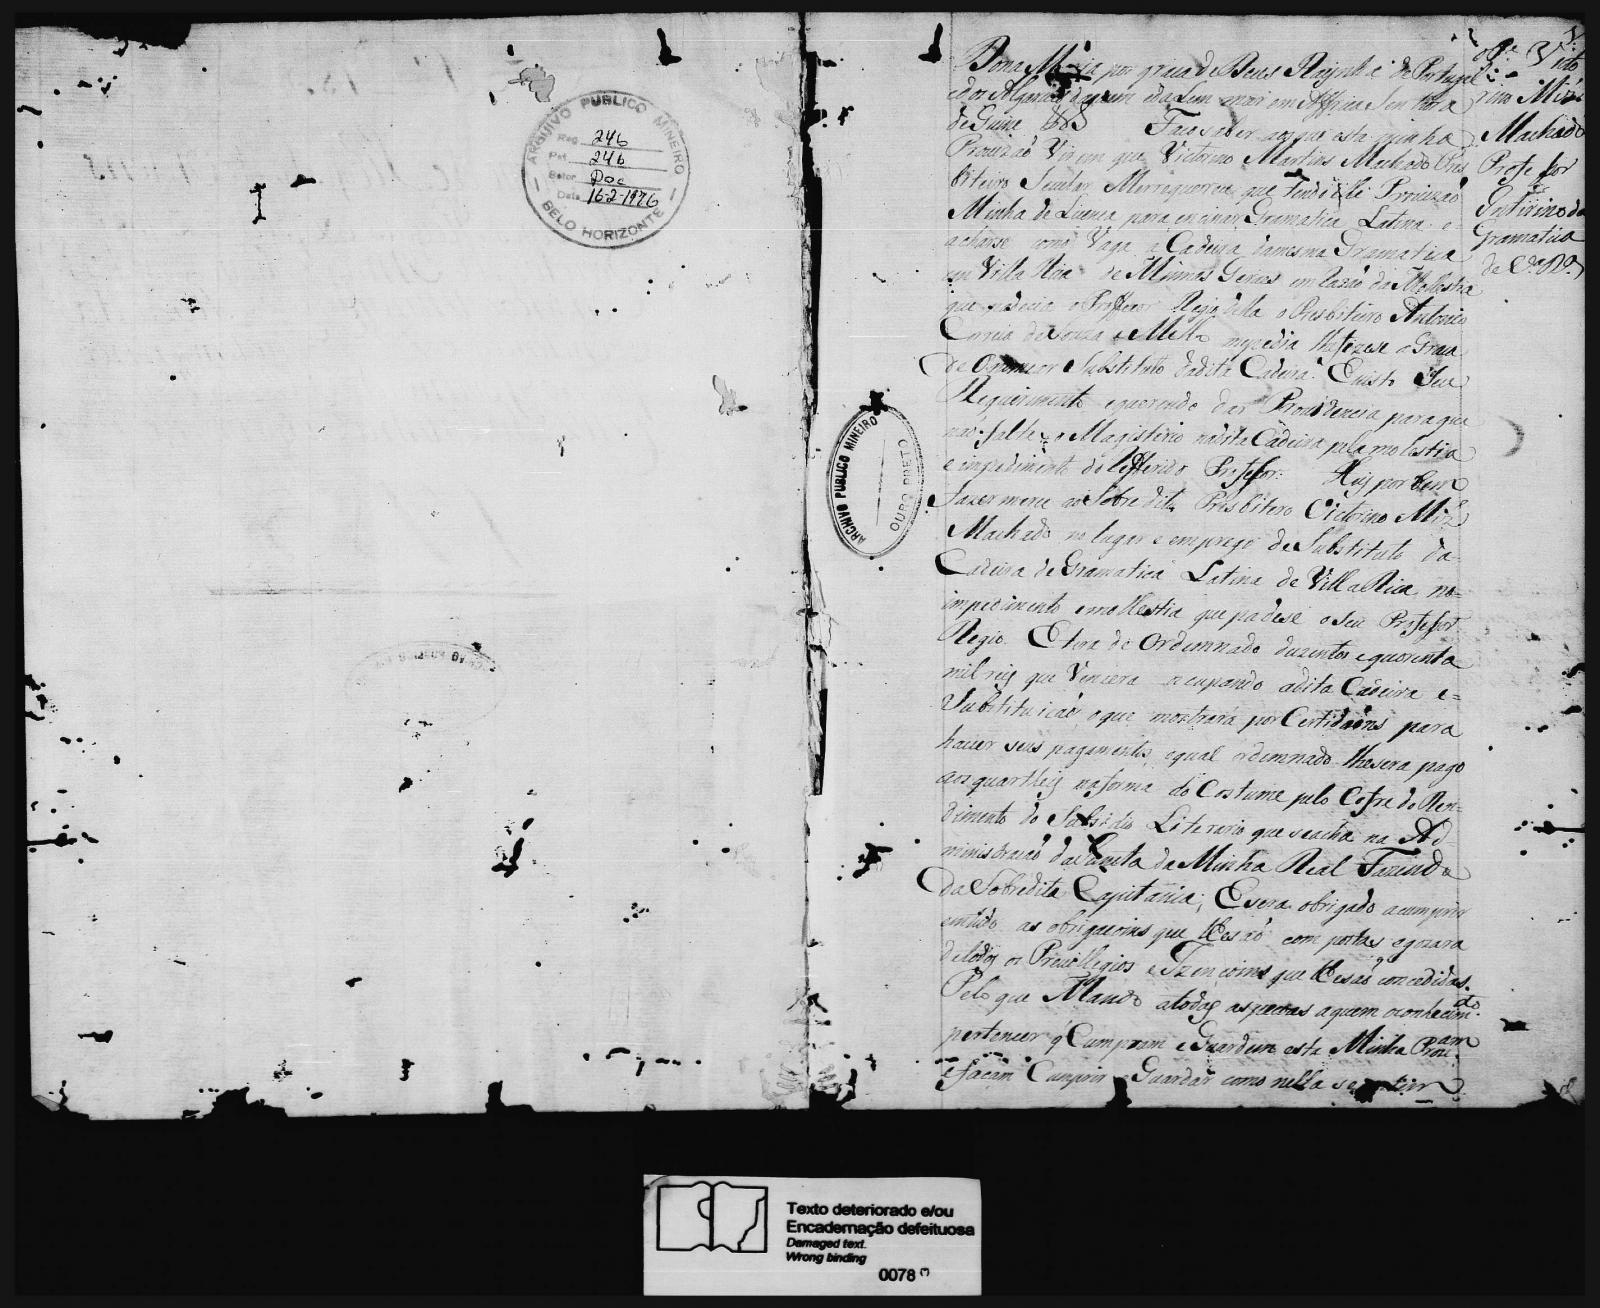 ARQUIVO PUBLICO MINEIRO
Reg. 246
Pat. 246
Setor Doc
Data 16-2-1976
BELO HORIZONTE
ARCHIVO PUBLICO MINEIRO
OURO PRETO
1
Dona Maria por graca de Deos Raynha de Portugal
e dos Algarves daquem e dalem mar em Affrica Senhora
de Guine &&& Faco saber aos que esta minha
Provizaõ Virem que Victorino Martins Machado Pres
biteiro Secular Merrequereu que tendo lhe Provizaõ
Minha de Licenca para encinar Gramatica Latina e
acharse como Vaga a Cadeira da mesma Gramatica
em Villa Rica de Minnas Geraes em razaõ da Mollestia
que padecia o Proffecor Regio della o Presbitero Antonio
Correia de Souza e Mello mepedia lhefizese a Graca
de o Substituto da dita Cadeira. E visto seu
Requerimento e querendo dar Providencia para que
naõ falte o Magisterio na dita Cadeira pela molestia
e impedimento do Refferido Professor: Hey por bem
Fazer merce ao Sobre dito Presbitero Victorino Miz
Machado no lugar e emprego de Substituto da
Cadeira de Gramatica Latina de Villa Rica no
impedimento e mollestia que padese o seu Professor
Regio. E tera de Ordennado duzentos e quorenta
mil reis que Vencera ocupando a dita Cadeira e
Substituicaõ o que mostrara por Certidaõns para
haver seus pagamentos, e qual ordennado lhe sera pago
aos quartheis na forma do Costume pelo Cofre do Ren
dimento do Subsidio Literario que se acha na Ad
ministracaõ da Junta da Minha Real Fazenda
da Sobredita Capitania; E sera obrigado a cumprir
em tudo as obrigacoins que lhe saõ com postas e gozara
de todos os Previllegios e Izencoins que lhe saõ concedidas.
Pelo que Mando a todas as pecoas a quem o conhecim.to
pertencer q Cumpram e Guardem esta Minha Prov.am
e facam Cumprir e Guardar como nella se contem
o P.e Victo
rino Miz
Machado
Professor
Intirino da
Gramatica
de V.a R.a
Texto deteriorado e/ou
Encadernação defeituosa
Damaged text.
Wrong binding
0078